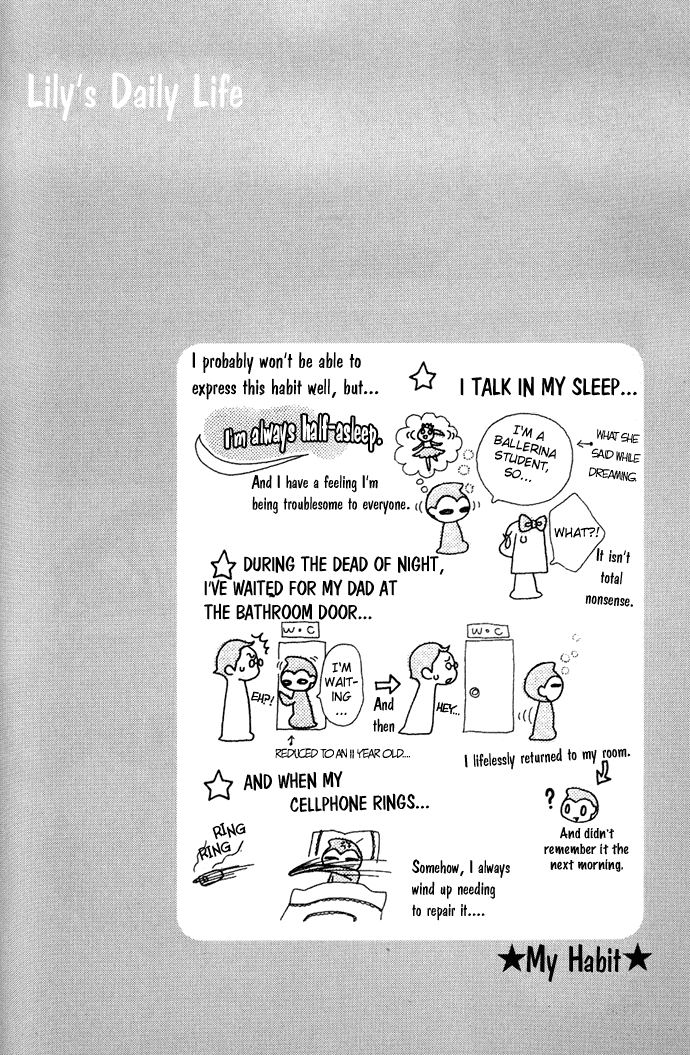 Lily's Daily Life
I probably won't be able to
express this habit well, but...
I'm always half-asleep.
And I have a feeling I'm
being troublesome to everyone.
☆ I TALK IN MY SLEEP...
I'M A
BALLERINA
STUDENT,
SO...
← WHAT SHE
SAID WHILE
DREAMING.
WHAT?!
It isn't
total
nonsense.
☆ DURING THE DEAD OF NIGHT,
I'VE WAITED FOR MY DAD AT
THE BATHROOM DOOR...
W•C
EH?!
I'M
WAIT-
ING
...
↑
REDUCED TO AN 11 YEAR OLD...
⇨
And
then
HEY...
W•C
I lifelessly returned to my room.
?
And didn't
remember it the
next morning.
☆ AND WHEN MY
CELLPHONE RINGS...
RING
RING
Somehow, I always
wind up needing
to repair it....
★My Habit★